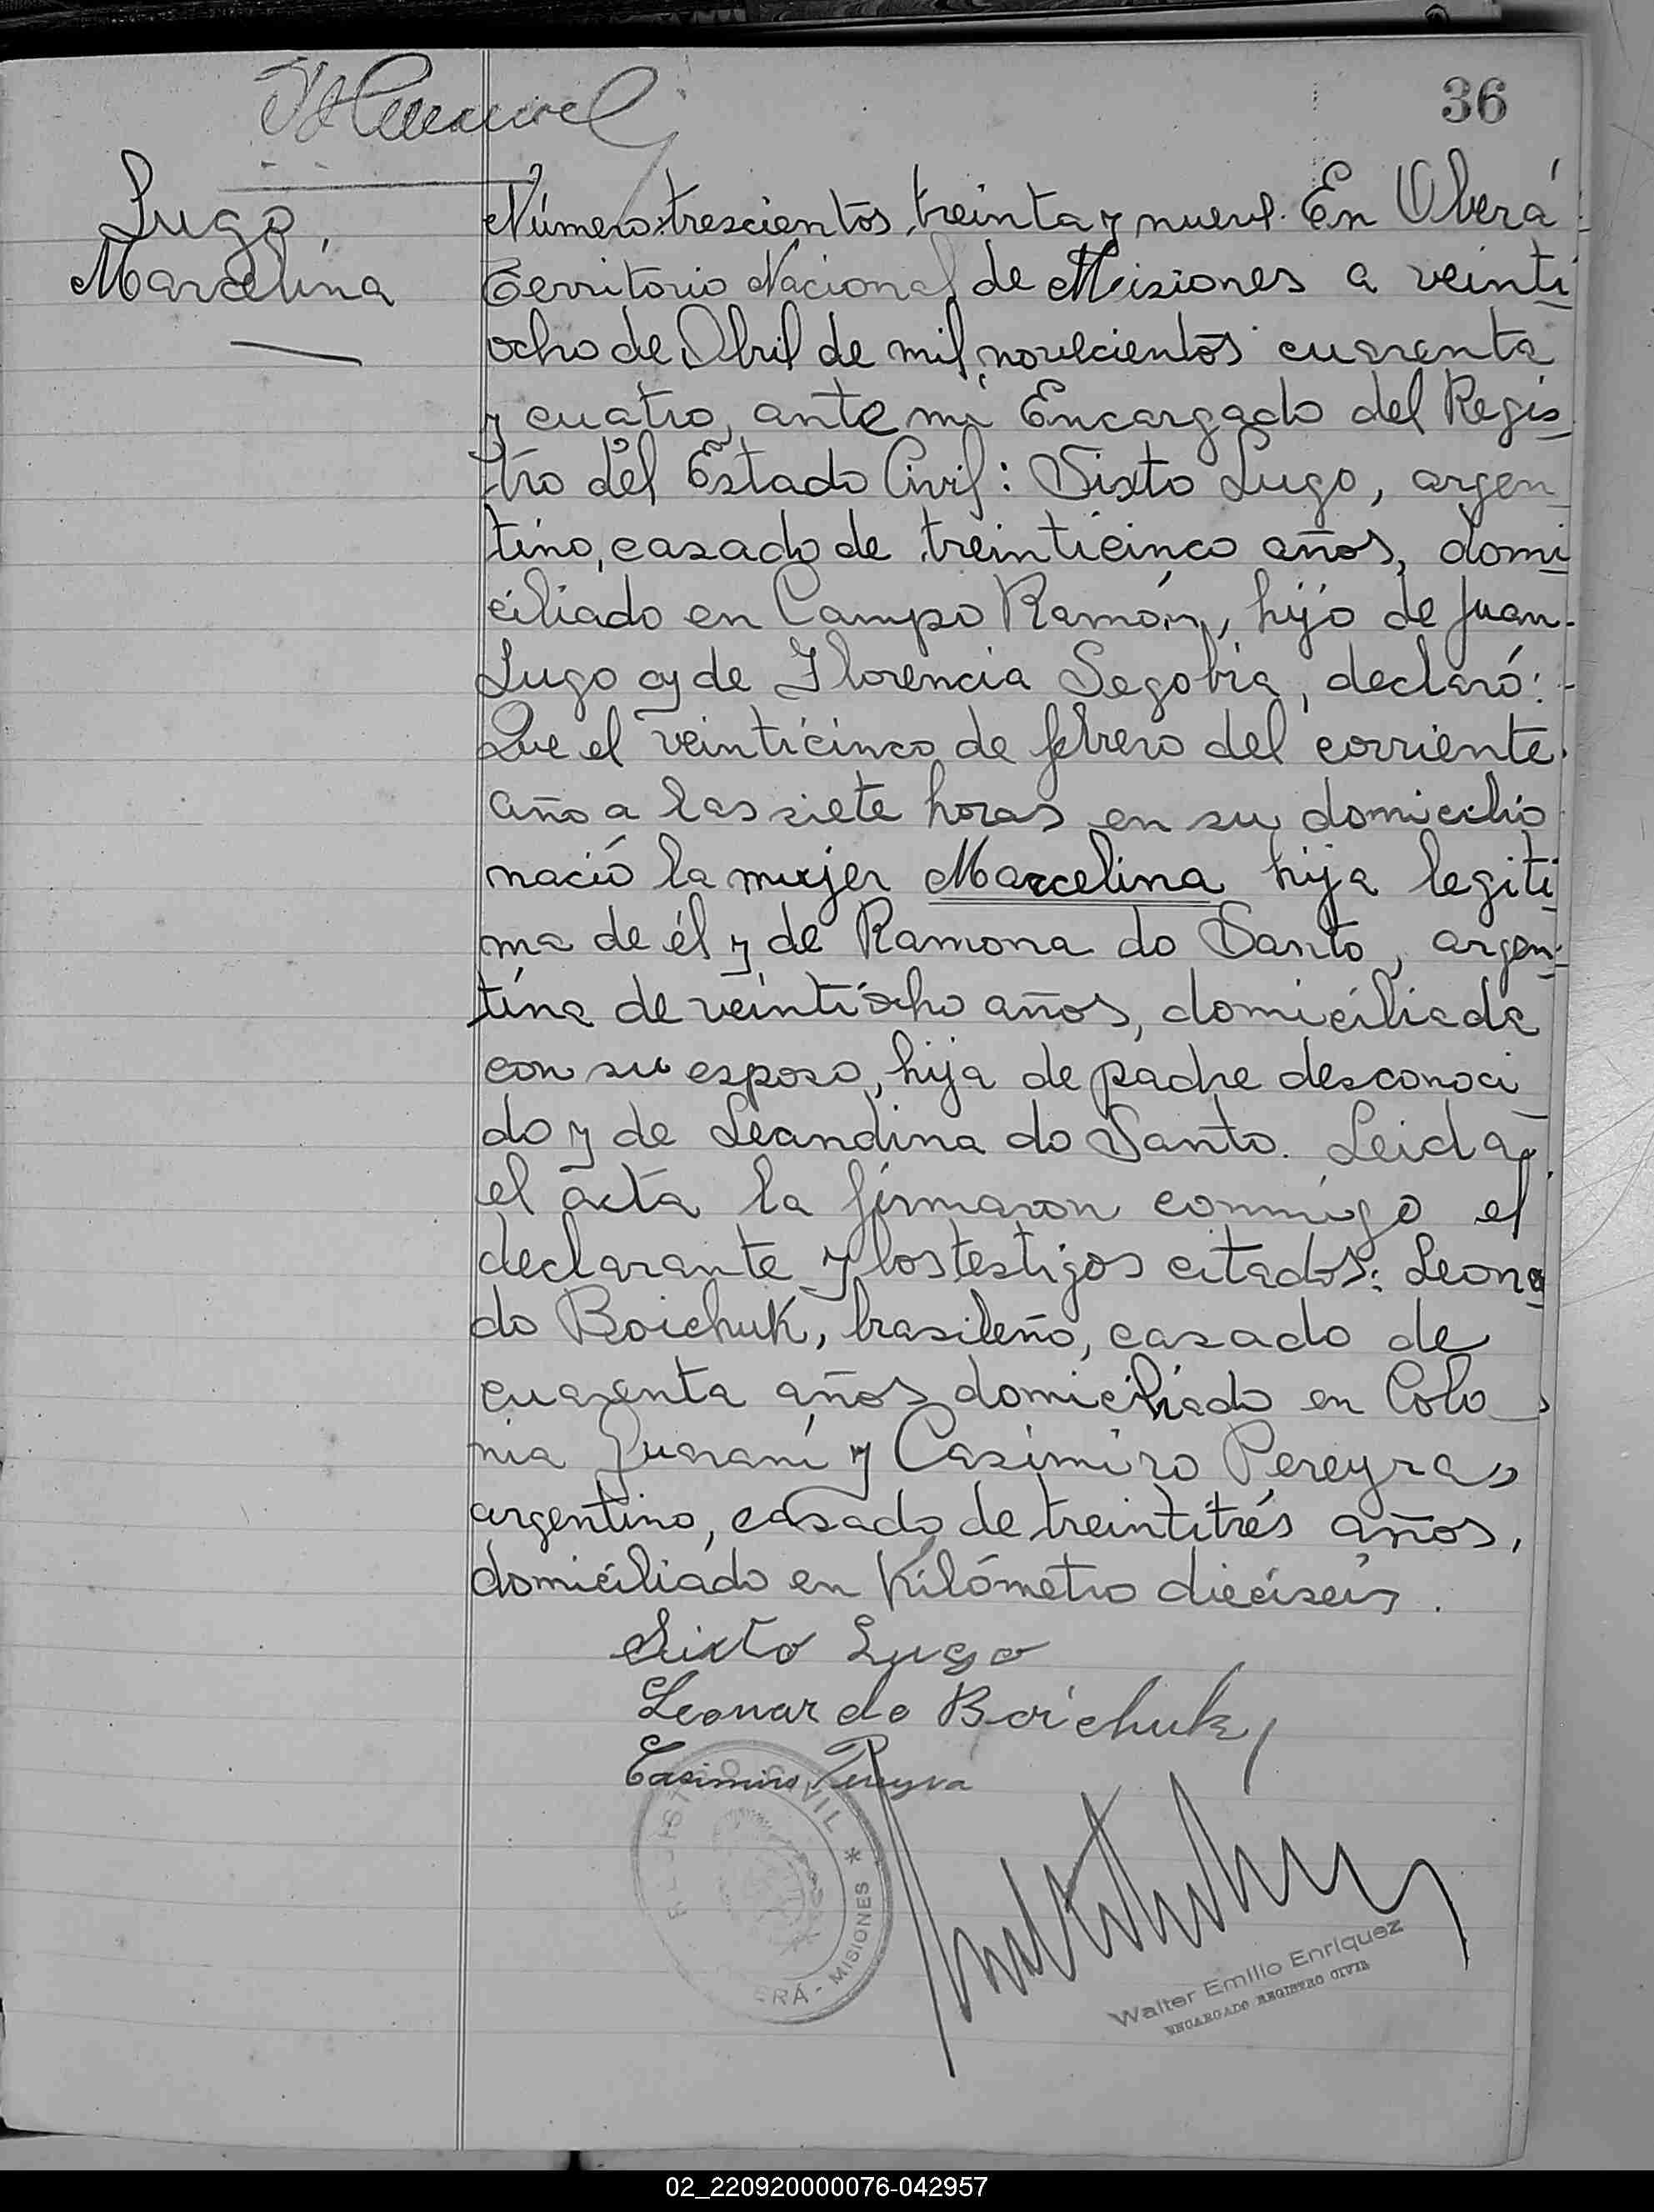 36
Lugo,
Marcelina
Número trescientos treinta y nueve. En Oberá
Territorio Nacional de Misiones a veinti
ocho de Abril de mil novecientos cuarenta
y cuatro, ante mí Encargado del Regis
tro del Estado Civil: Sixto Lugo, argen
tino, casado de treinticinco años, domi
ciliado en Campo Ramón, hijo de Juan
Lugo y de Florencia Segobia, declaró:
Que el veinticinco de febrero del corriente
año a las siete horas en su domicilio
nació la mujer Marcelina hija legiti
ma de él y de Ramona do Santo, argen
tina de veintiocho años, domiciliada
con su esposo, hija de padre desconoci
do y de Leandina do Santo. Leida
el acta la firmaron conmigo el
declarante y los testigos citados: Leona
do Boichuk, brasileño, casado de
cuarenta años domiciliado en Colo
nia Guaraní y Casimiro Pereyra
argentino, casado de treintitrés años,
domiciliado en Kilómetro dieciseis.
Sixto Lugo
Leonardo Boichuk
Casimiro Pereyra
CIVIL * ERÁ - MISIONES
Walter Emilio Enriquez
ENCARGADO REGISTRO CIVIL
02_220920000076-042957